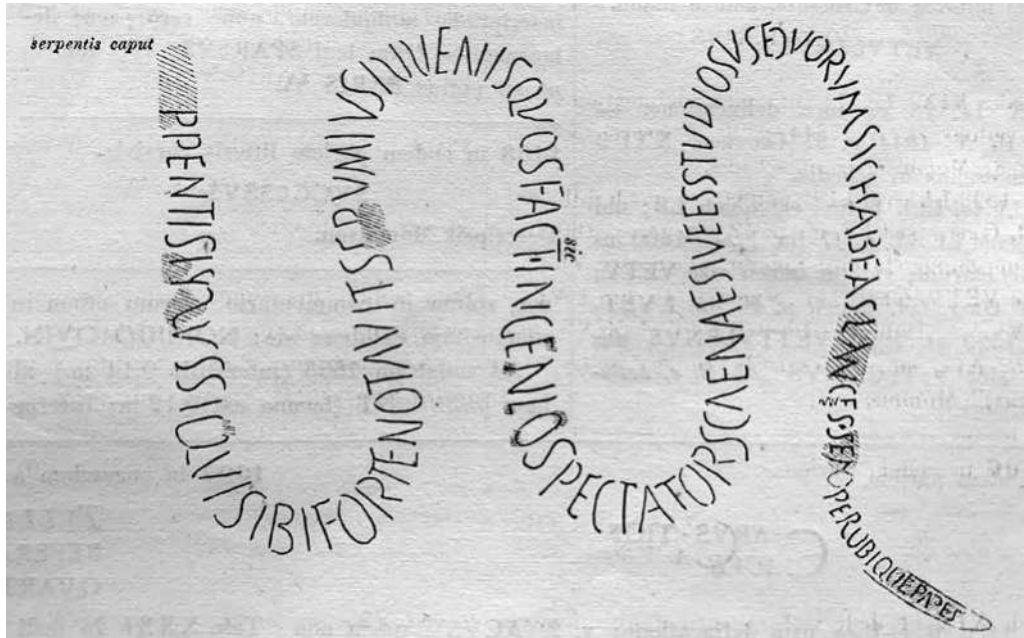 serpentis caput
RPENTISLVSVSSIQVISIBIFORTENOTAVITSEPVMIVSIVVENISQVOSFACITINGENIOSPECTATORSCAENAESIVEESSTVDIOSVSEQVORVMSICHABEASLANCES·SEMPERUBIQUEPARES
sic